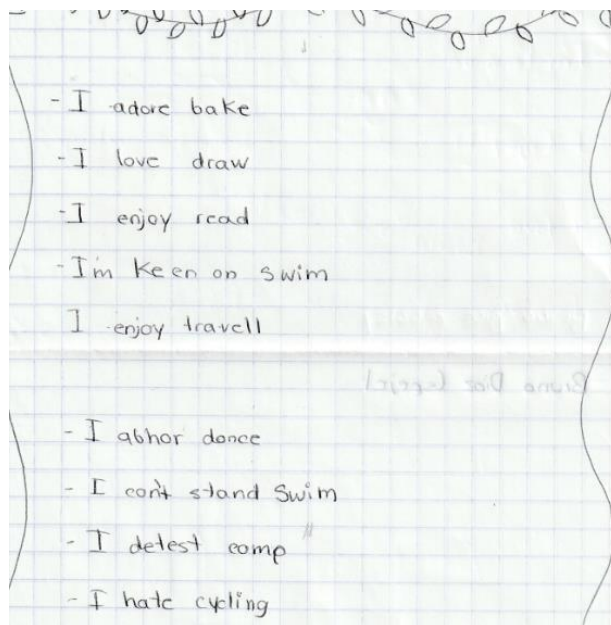 - I adore bake
- I love draw
- I enjoy read
- I'm keen on swim
I enjoy travell
- I abhor dance
- I can't stand swim
- I detest camp
- I hate cycling